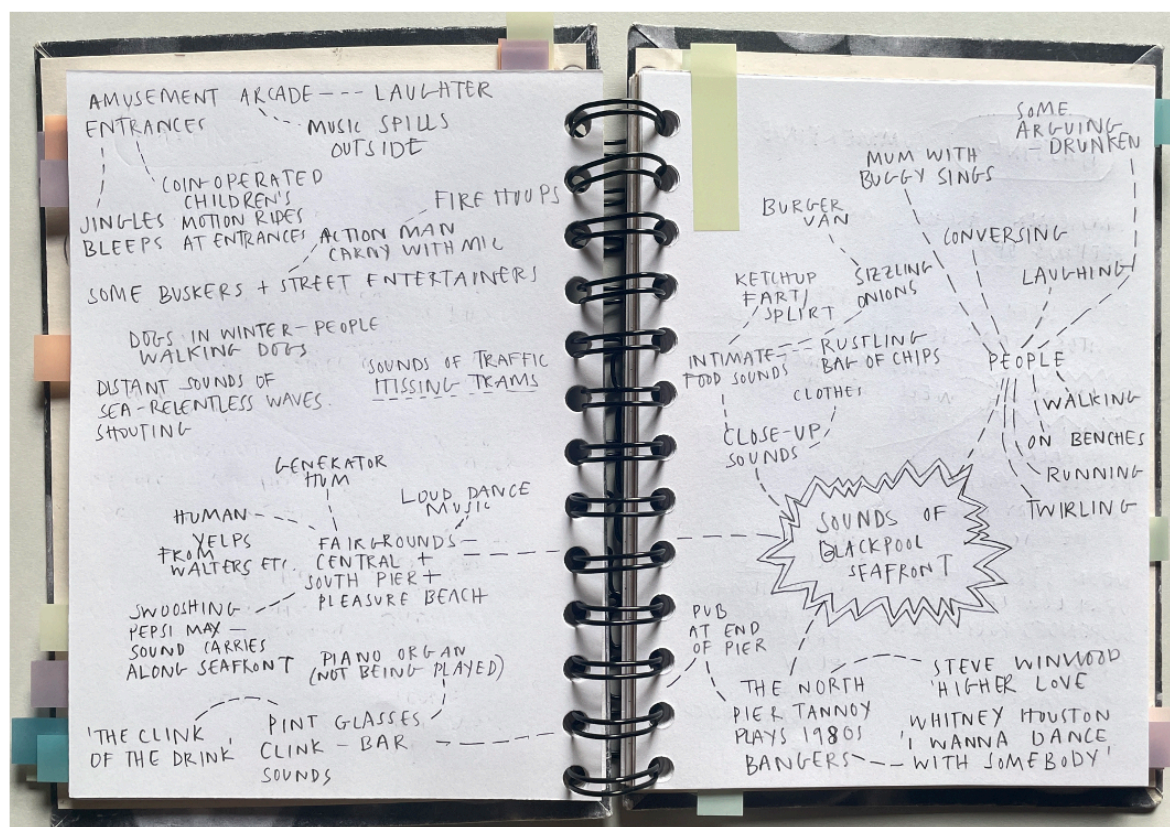 AMUSEMENT ARCADE --- LAUGHTER
ENTRANCES
MUSIC SPILLS
OUTSIDE
COIN-OPERATED
CHILDREN'S
MOTION RIDES
AT ENTRANCES
JINGLES
BLEEPS
FIRE HOOPS
ACTION MAN
CARNY WITH MIC
SOME BUSKERS + STREET ENTERTAINERS
DOGS IN WINTER - PEOPLE
WALKING DOGS
SOUNDS OF TRAFFIC
HISSING TRAMS
DISTANT SOUNDS OF
SEA - RELENTLESS WAVES.
SHOUTING
GENERATOR
HUM
LOUD DANCE
MUSIC
HUMAN
YELPS
FROM
WALTERS ETC.
FAIRGROUNDS -
CENTRAL +
SOUTH PIER +
PLEASURE BEACH
SWOOSHING
PEPSI MAX -
SOUND CARRIES
ALONG SEAFRONT
PIANO ORGAN
(NOT BEING PLAYED)
'THE CLINK
OF THE DRINK'
PINT GLASSES
CLINK - BAR
SOUNDS
SOME
ARGUING
- DRUNKEN
MUM WITH
BUGGY SINGS
BURGER
VAN
CONVERSING
LAUGHING
KETCHUP
FART/
SPLIRT
SIZZLING
ONIONS
INTIMATE
FOOD SOUNDS
RUSTLING
BAG OF CHIPS
PEOPLE
CLOTHES
WALKING
CLOSE-UP
SOUNDS
ON BENCHES
RUNNING
TWIRLING
SOUNDS OF
BLACKPOOL
SEAFRONT
PUB
AT END
OF PIER
THE NORTH
PIER TANNOY
PLAYS 1980S
BANGERS
STEVE WINWOOD
'HIGHER LOVE
'WHITNEY HOUSTON
'I WANNA DANCE
WITH SOMEBODY'